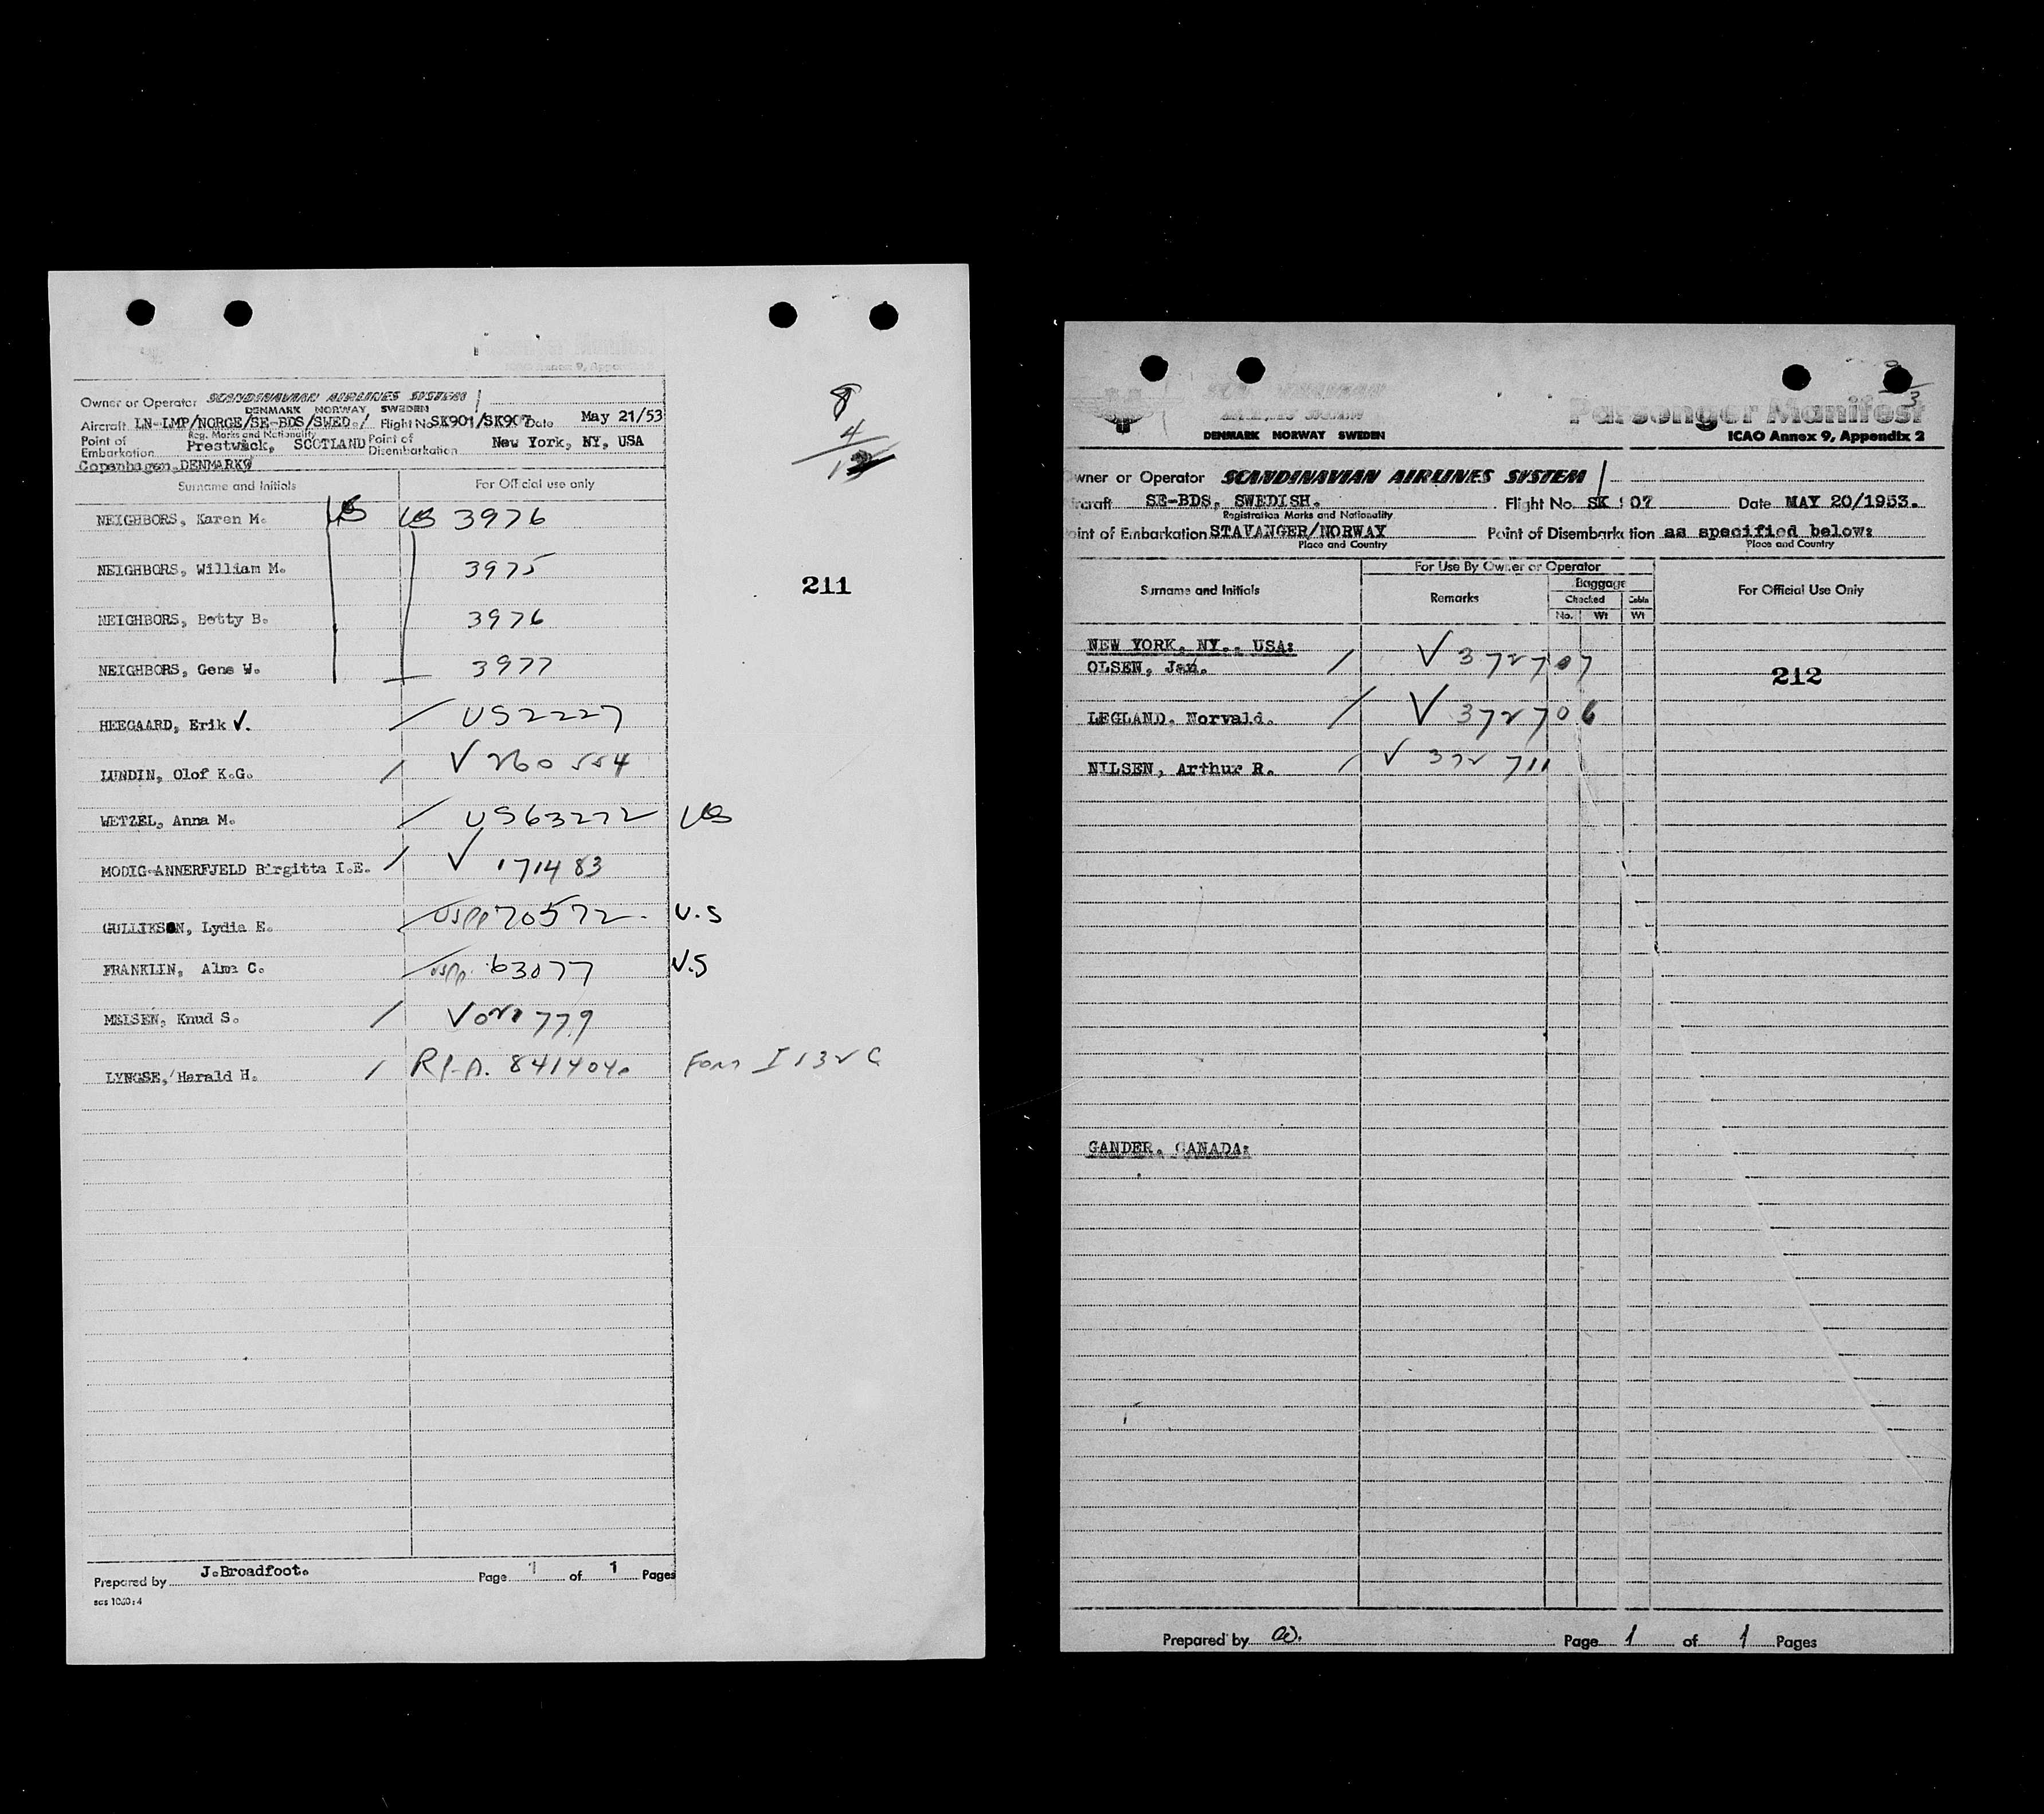 Owner or Operator SCANDINAVIAN AIRLINES SYSTEM
DENMARK NORWAY SWEDEN
Aircraft LN-LMP/NORGE/SE-BDS/SWED./ Flight No. SK901/SK907 Date May 21/53
Reg. Marks and Nationality
Point of Embarkation Prestwick, SCOTLAND Point of Disembarkation New York, NY, USA
Copenhagen, DENMARK
Surname and Initials For Official use only
8
4
12
NEIGHBORS, Karen M. US US 3976
NEIGHBORS, William M. 3975
211
NEIGHBORS, Betty B. 3976
NEIGHBORS, Gene W. 3977
HEEGAARD, Erik V. / US2227
LUNDIN, Olof K.G. / V 260554
WETZEL, Anna M. / US63272 US
MODIG-ANNERFJELD Birgitta I.E. / V 171483
GULLIKSON, Lydia E. / USPP 70572. U.S
FRANKLIN, Alma C. / USPP. 63077 U.S
MELSEN, Knud S. / V 021779
LYNGSE, Harald H. / R.P.A. 841404. Form I 132 C
Prepared by J.Broadfoot. Page 1 of 1 Pages
sas 1060:4
Passenger Manifest
DENMARK NORWAY SWEDEN
ICAO Annex 9, Appendix 2
Owner or Operator SCANDINAVIAN AIRLINES SYSTEM
Aircraft SE-BDS, SWEDISH. Flight No. SK 907 Date MAY 20/1953.
Registration Marks and Nationality
Point of Embarkation STAVANGER/NORWAY Point of Disembarkation as specified below:
Place and Country Place and Country
For Use By Owner or Operator
Surname and Initials Remarks Baggage For Official Use Only
Checked Cabin
No. Wt Wt
NEW YORK, NY., USA:
OLSEN, Jan. / V 372707
212
LEGLAND, Norvald. / V 372706
NILSEN, Arthur R. / V 372 711
GANDER, CANADA:
Prepared by Page 1 of 1 Pages